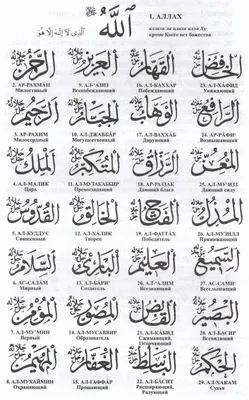 الله
الذي لا إله إلا هو
1. АЛЛАХ
аллази ла илаха илла Ху
кроме Коего нет божества
الرحمن العزيز القهار الخافض
2. АР-РАХМАН 9. АЛ-'АЗИЗ 16. АЛ-КАХХАР 23. АЛ-ХАФИД
Милостивый Унижающий
الرحيم الجبار الوهاب الرافع
3. АР-РАХИМ 10. АЛ-ДЖАББАР 17. АЛ-ВАХХАБ 24. АР-РАФИ'
Милосердный Могущественный Дарующий Возвышающий
الملك المتكبر الرزاق المعز
4. АЛ-МАЛИК 11. АЛ-МУТАКАББИР 18. АР-РАЗЗАК 25. АЛ-МУ'ИЗЗ
Царь Превосходящий Дающий блага Дающий силу
القدوس الخالق الفتاح المذل
5. АЛ-КУДДУС 12. АЛ-ХАЛИК 19. АЛ-ФАТТАХ 26. АЛ-МУЗИЛЛ
Священный Творец Победитель Принижающий
السلام البارئ العليم السميع
6. АС-САЛАМ 13. АЛ-БАРИ' 20. АЛ-'АЛИМ 27. АС-САМИ'
Мирный Создатель Всезнающий Всеслышащий
المؤمن المصور القابض البصير
7. АЛ-МУ'МИН 14. АЛ-МУСАВВИР 21. АЛ-КАБИД 28. АЛ-БАСИР
Верный Образователь Сжимающий, Всевидящий
المهيمن الغفار الباسط الحكم
8. АЛ-МУХАЙМИН 15. АЛ-ГАФФАР 22. АЛ-БАСИТ 29. АЛ-ХАКАМ
Охраняющий Прощающий Расширяющий, Судья
Радующий